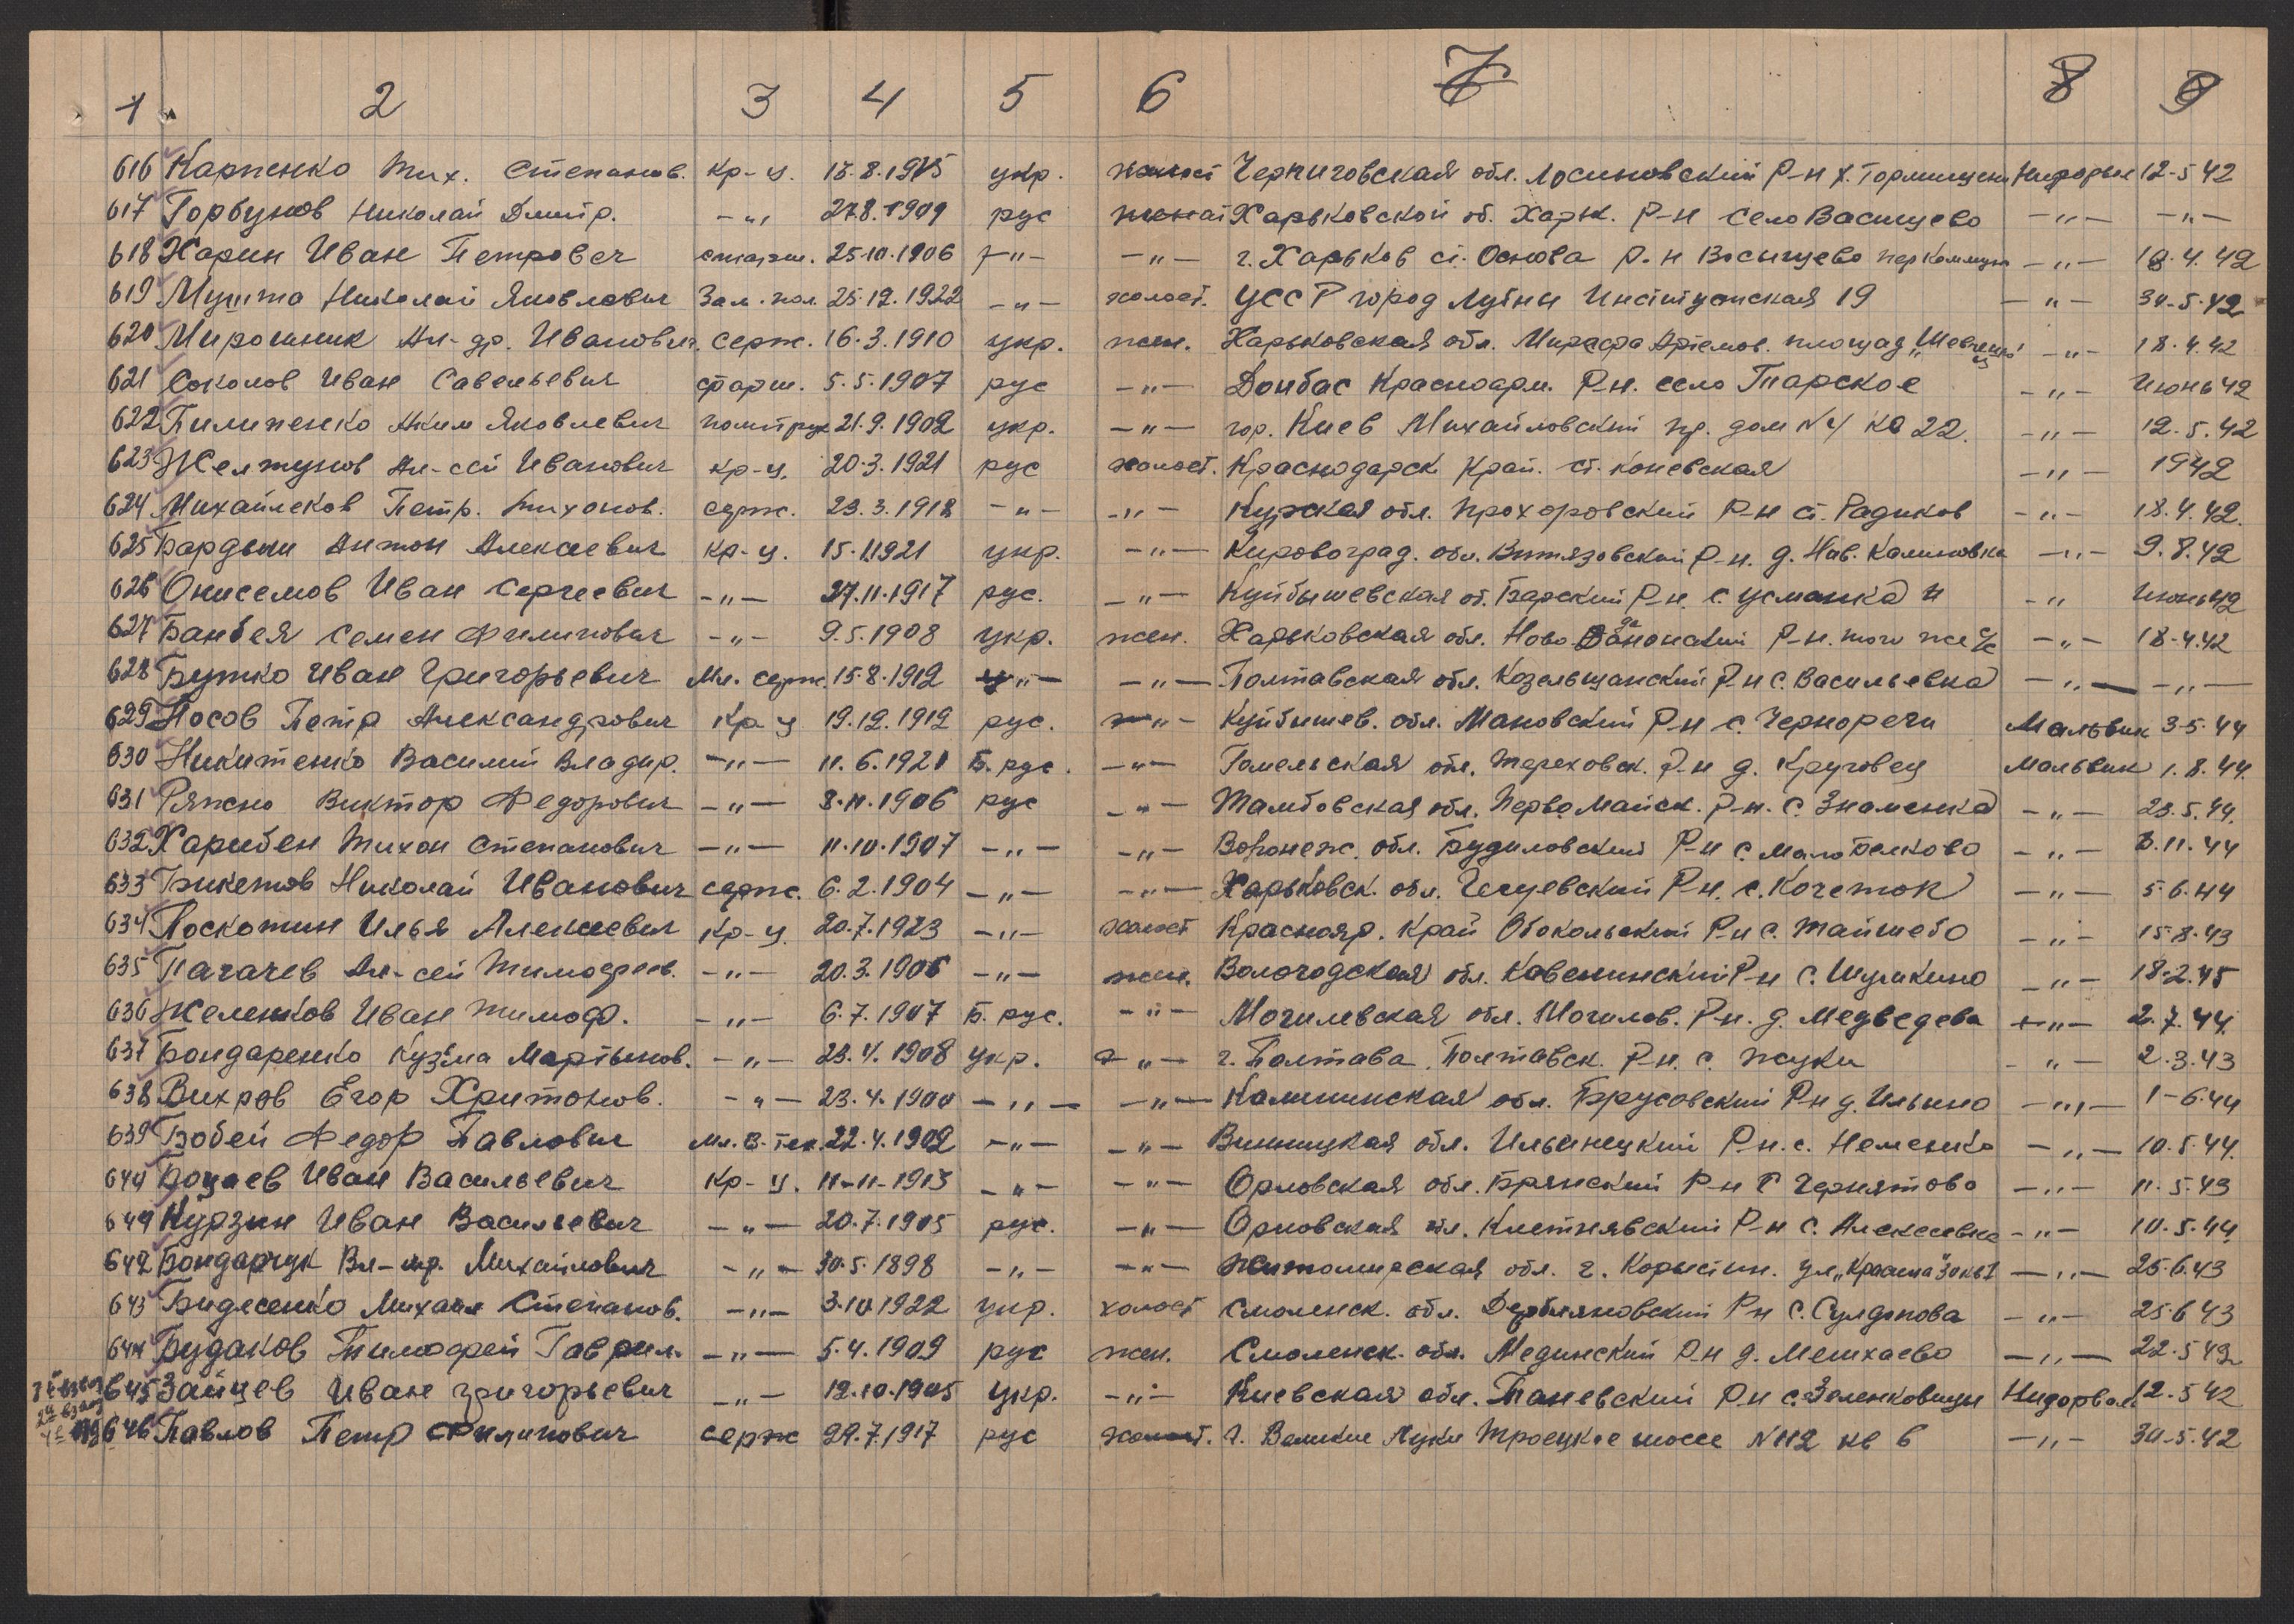 1 2 3 4 5 6 7 8 9
616 Карпенко Тих. Степанов. кр-ц. 15.8.1915 укр. холост Черниговская обл. Лосиновский Р-н х. 12-5 42
617 Горбунов Николай Дмитр. -"- 27.8.1909 рус женат Харьковской об. Харьк. Р-н село Васищево -"- -"-
618 Харин Иван Петрович старш. 25.10.1906 -"- -"- г. Харьков ст. Основа Р-н Восыщево пер коммун -"- 18.4.42
619 Мушта Николай Яковлевич Зам. пол. 25.12.1922 -"- холост. УССР город Лубны Институтская 19 -"- 30-5.42
620 Мирошник Ал-др. Иванович. серж. 16.3.1910 укр. жен. Харьковская обл. Артемов. площад -"- 18.4.42
621 Соколов Иван Савельевич старш. 5.5.1907 рус -"- Донбас Красноарм. Р-н. село Тарское -"- Июнь 42
622 Пилипенко Аким Яковлевич политрук 21.9.1902 укр. -"- гор. Киев Михайловский пр. дом N4 кв 22. -"- 12.5.42
623 Желтухов Ал-сей Иванович кр-ц. 20.3.1921 рус холост. Краснодарск Край. ст. Коневская -"- 1942
624 Михайлеков Петр. Тихонов. серж. 23.3.1918 -"- -"- Курская обл. Прохоровский Р-н ст. Радиков -"- 18.4.42.
625 Бардыш Антон Алексеевич кр-ц. 15.1.1921 укр. -"- Кировоград. обл. Витязовский Р-н. д. Нов. Калиновка -"- 9.8.42
626 Онисемов Иван Сергеевич -"- 27.11.1917 рус. -"- Куйбышевская об. Барский Р-н. с. Усманка -"- Июнь 42
627 Банбея Семен Филипович -"- 9.5.1908 укр. жен. Харьковская обл. Ново Р-н. того же с/с -"- 18-4.42
628 Бутко Иван Григорьевич Мл. серж. 15.8.1912 -"- -"- Полтавская обл. Козельщанский Р-н с. Васильевка -"- -"-
629 Носов Петр Александрович Кр-ц 19.12.1912 рус. -"- Куйбышев. обл. Мановский Р-н с. Чернореги Мальвик 3-5.44
630 Никитенко Василий Владир. -"- 11.6.1921 Б. рус. -"- Гомельская обл. Тереховск. Р-н д. Круговец Мальвик 1.8.44.
631 Ряжено Виктор Федорович -"- 8.11.1906 рус -"- Тамбовская обл. Перво Майск. Р-н. с. Знаменка -"- 23.5.44.
632 Харибен Тихон Степанович -"- 11.10.1907 -"- -"- Воронеж. обл. Будиловский Р-н с. Мало Белково -"- 8.11.44
633 Бикетов Николай Иванович серж. 6.2.1904 -"- -"- Харьковск. обл. Чугуевский Р-н. с. Кочеток -"- 5.6.44
634 Поскотин Илья Алексеевич Кр-ц. 20.7.1923 -"- холост Краснояр. Край Р-н с. -"- 15.8.43
635 Пагачев Ал-сей Тимофеев. -"- 20.3.1906 -"- жен. Вологодская обл. Р-н с. Шуликино -"- 18.2.45
636 Желенков Иван Тимоф. -"- 6.7.1907 Б. рус. -"- Могилевская обл. Могилов. Р-н. д. Медведева -"- 2.7.44.
637 Бондаренко Кузьма Мартынов. -"- 23.4.1908 укр. -"- г. Полтава, Полтавск. Р-н. с. Жуки -"- 2.3.43
638 Вихров Егор Харитонов. -"- 23.4.1900 -"- -"- Калининская обл. Брусовский Р-н д. Ильино -"- 1-6.44
639 Бобей Федор Павлович Мл. в-тех. 22.4.1902 -"- -"- Винницкая обл. Ильинецкий Р-н. с. Неменка -"- 10.5.44.
640 Боцаев Иван Васильевич Кр-ц. 11-11-1913 -"- -"- Орловская обл. Брянский Р-н с Чернятово -"- 11.5.43
641 Курзин Иван Васильевич -"- 20.7.1905 рус. -"- Орловская обл. Клетнявский Р-н с. Алексеевка -"- 10.5.44
642 Бондарчук Вл-мр. Михайлович -"- 30.5.1898 -"- -"- Житомирская обл. г. Коростин. ул. -"- 25.6.43
643 Бидесенко Михаил Степанов. -"- 3.10.1922 укр. холост Смоленск. обл. Р-н с. -"- 25.6 43
644 Будаков Тимофей Гаврил. -"- 5.4.1909 рус жен. Смоленск. обл. Мединский Р-н д. Мешхаево -"- 22.5 42
645 Зайцев Иван Григорьевич -"- 12.10.1905 укр. -"- Киевская обл. Таневский Р-н с. Зеленковицы Нидорвал 12-5 42
646 Павлов Петр Филипович серж 29.7.1917 рус холост. г. Великие Луки Троецкое шоссе N112 кв 6 -"- 30-5.42